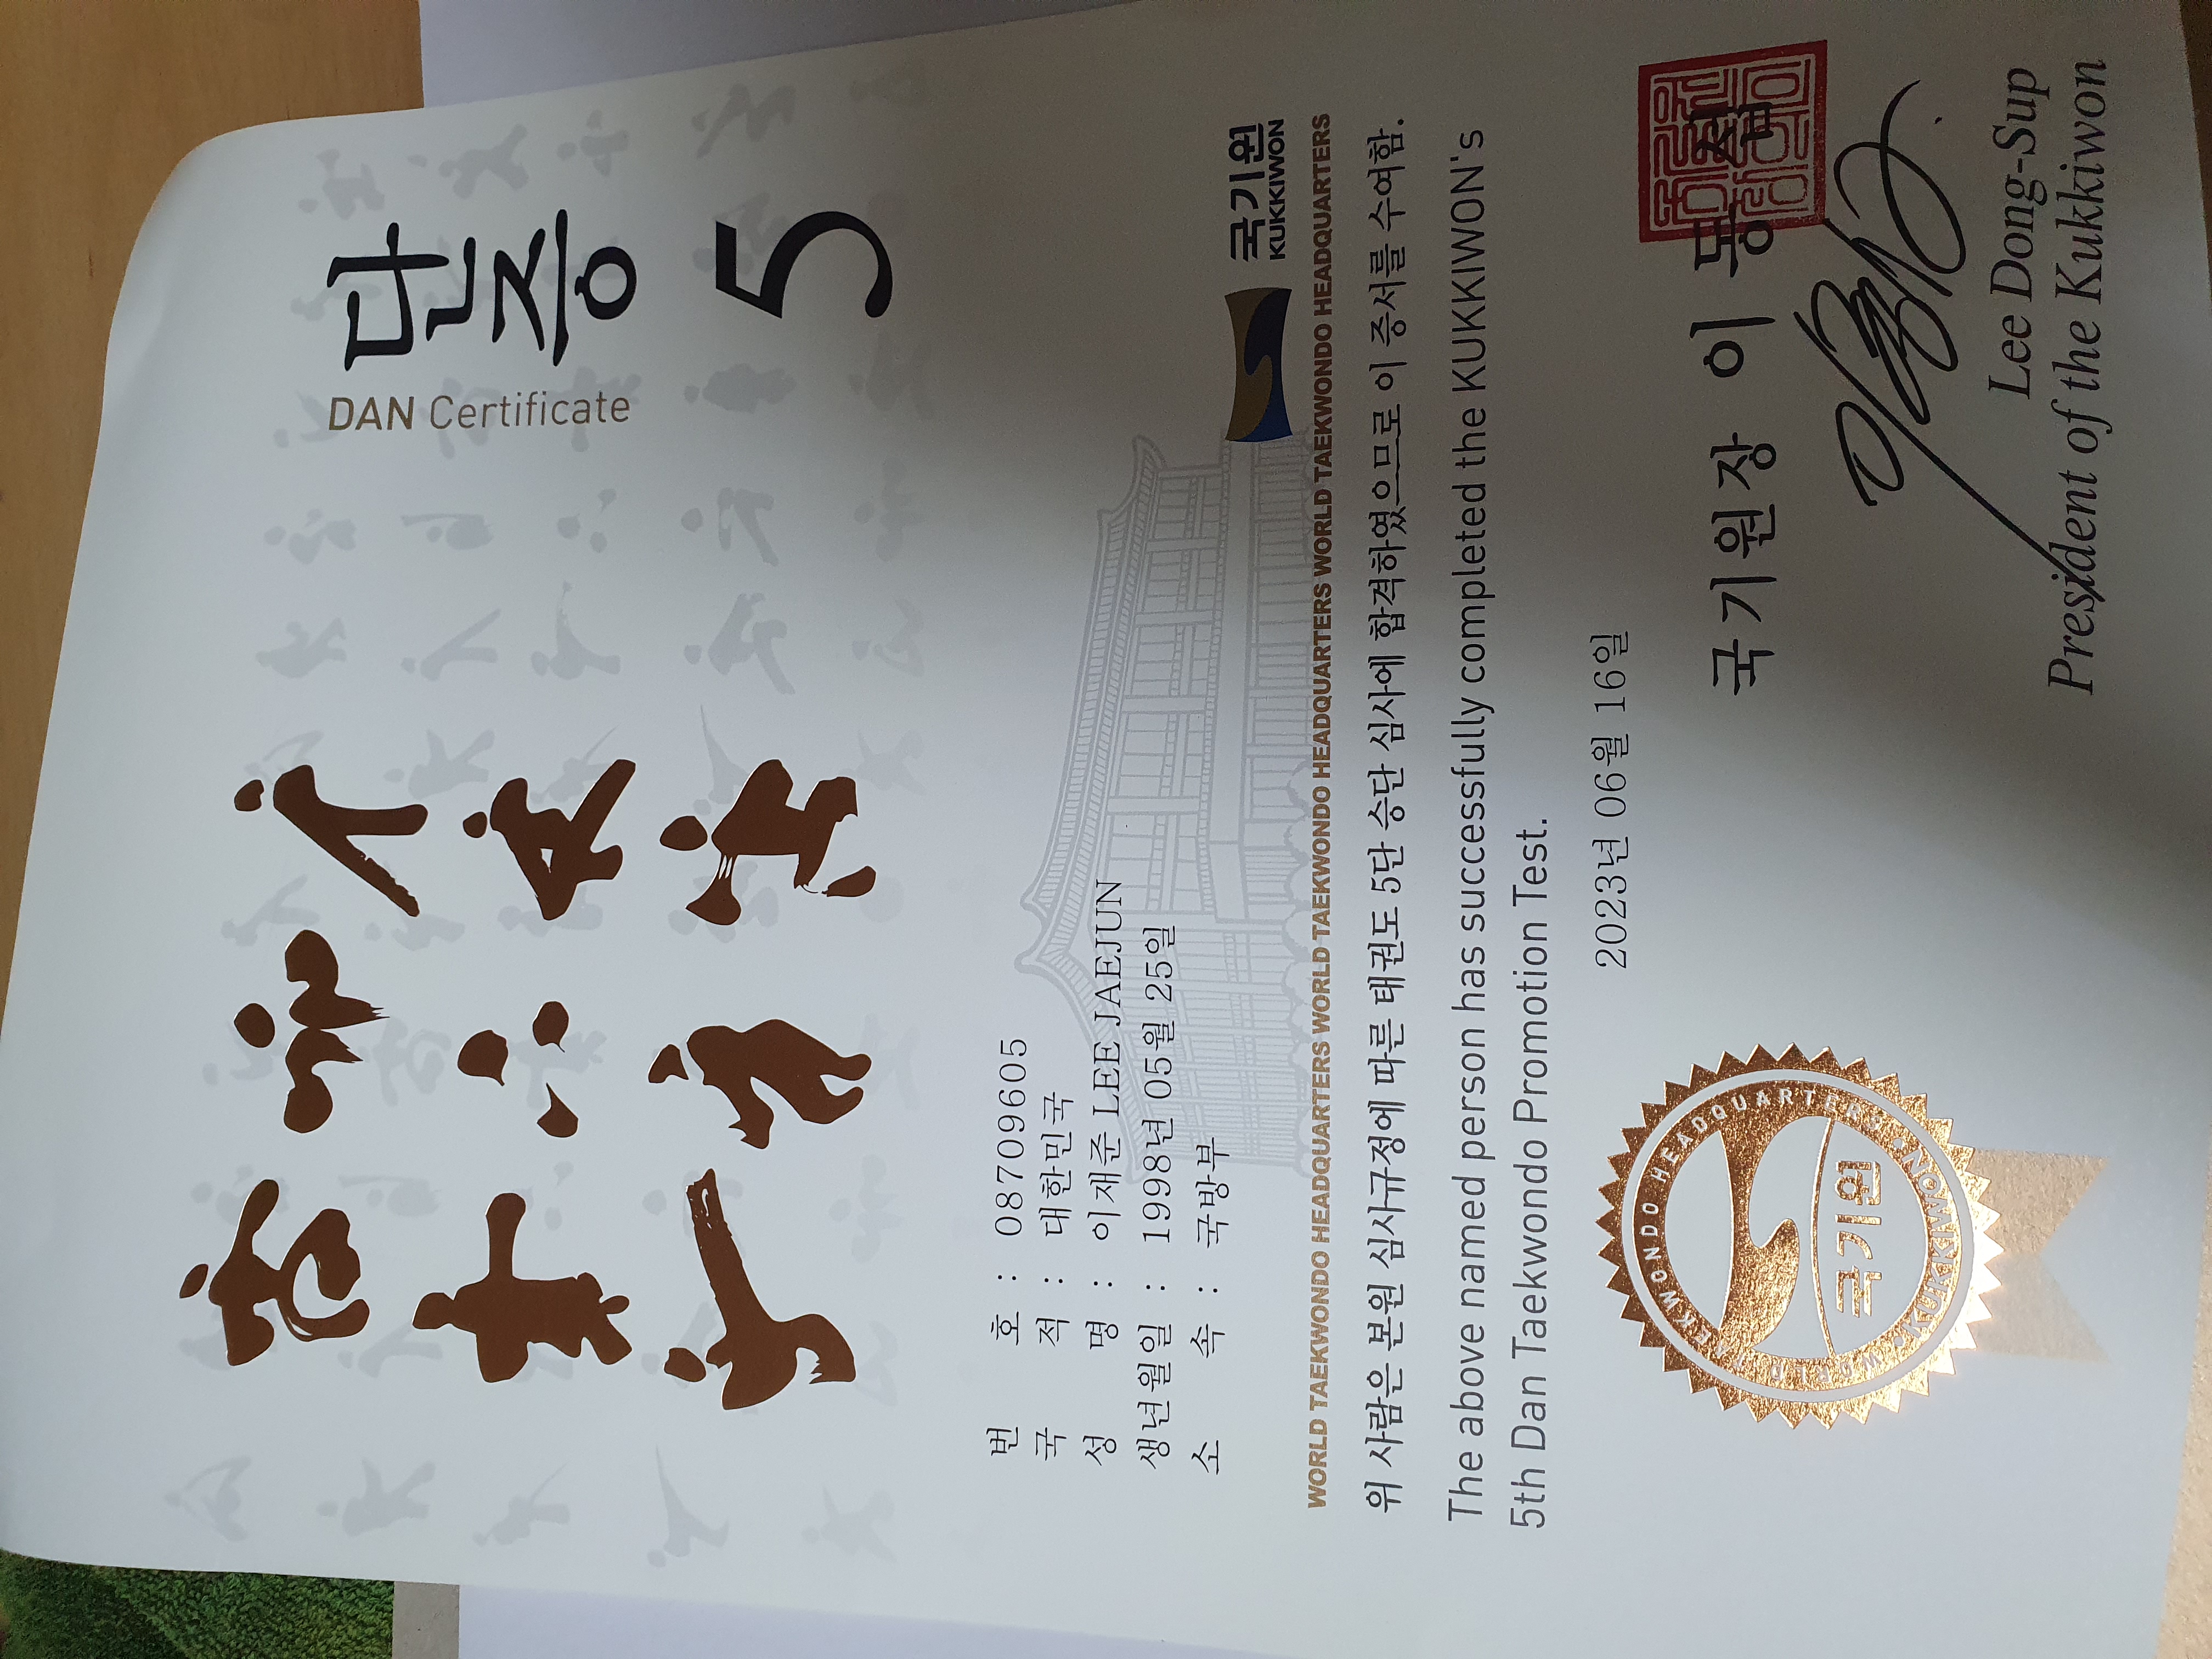 단증
5
DAN Certificate
번 호 : 08709605
국 적 : 대한민국
성 명 : 이재준 LEE JAEJUN
생년월일 : 1998년 05월 25일
소 속 : 국방부
국기원
KUKKIWON
WORLD TAEKWONDO HEADQUARTERS WORLD TAEKWONDO HEADQUARTERS WORLD TAEKWONDO HEADQUARTERS WORLD TAEKWONDO HEADQUARTERS
위 사람은 본원 심사규정에 따른 태권도 5단 승단 심사에 합격하였으므로 이 증서를 수여함.
The above named person has successfully completed the KUKKIWON's
5th Dan Taekwondo Promotion Test.
2023년 06월 16일
국기원장 이 동 섭
Lee Dong-Sup
President of the Kukkiwon
WORLD TAEKWONDO HEADQUARTERS
국기원
KUKKIWON